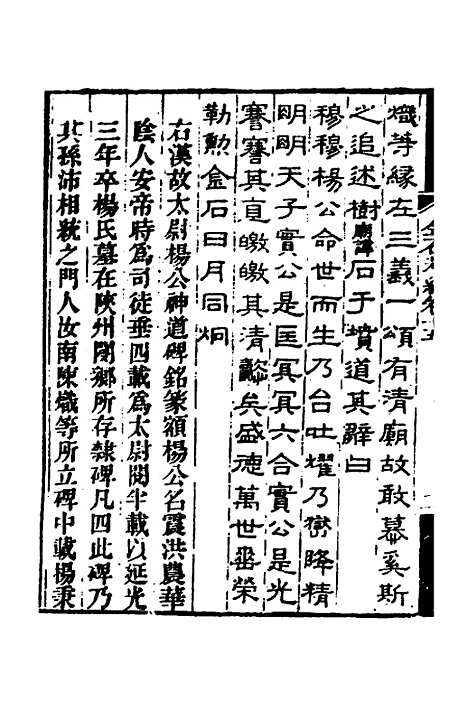 熾等緣左三義一頌有清廟故敢慕奚斯
之追述樹廟諱石于墳道其辭曰
穆穆楊公命世而生乃台吐燿乃嶽降精
明明天子實公是匡冥冥六合實公是光
謇謇其直皦皦其清懿矣盛德萬世垂榮
勒勲金石日月同炯
右漢故太尉楊公神道碑銘篆額楊公名震洪農華
陰人安帝時爲司徒垂四載爲太尉閱半載以延光
三年卒楊氏墓在陝州閿鄉所存隸碑凡四此碑乃
其孫沛相統之門人汝南陳熾等所立碑中載楊秉